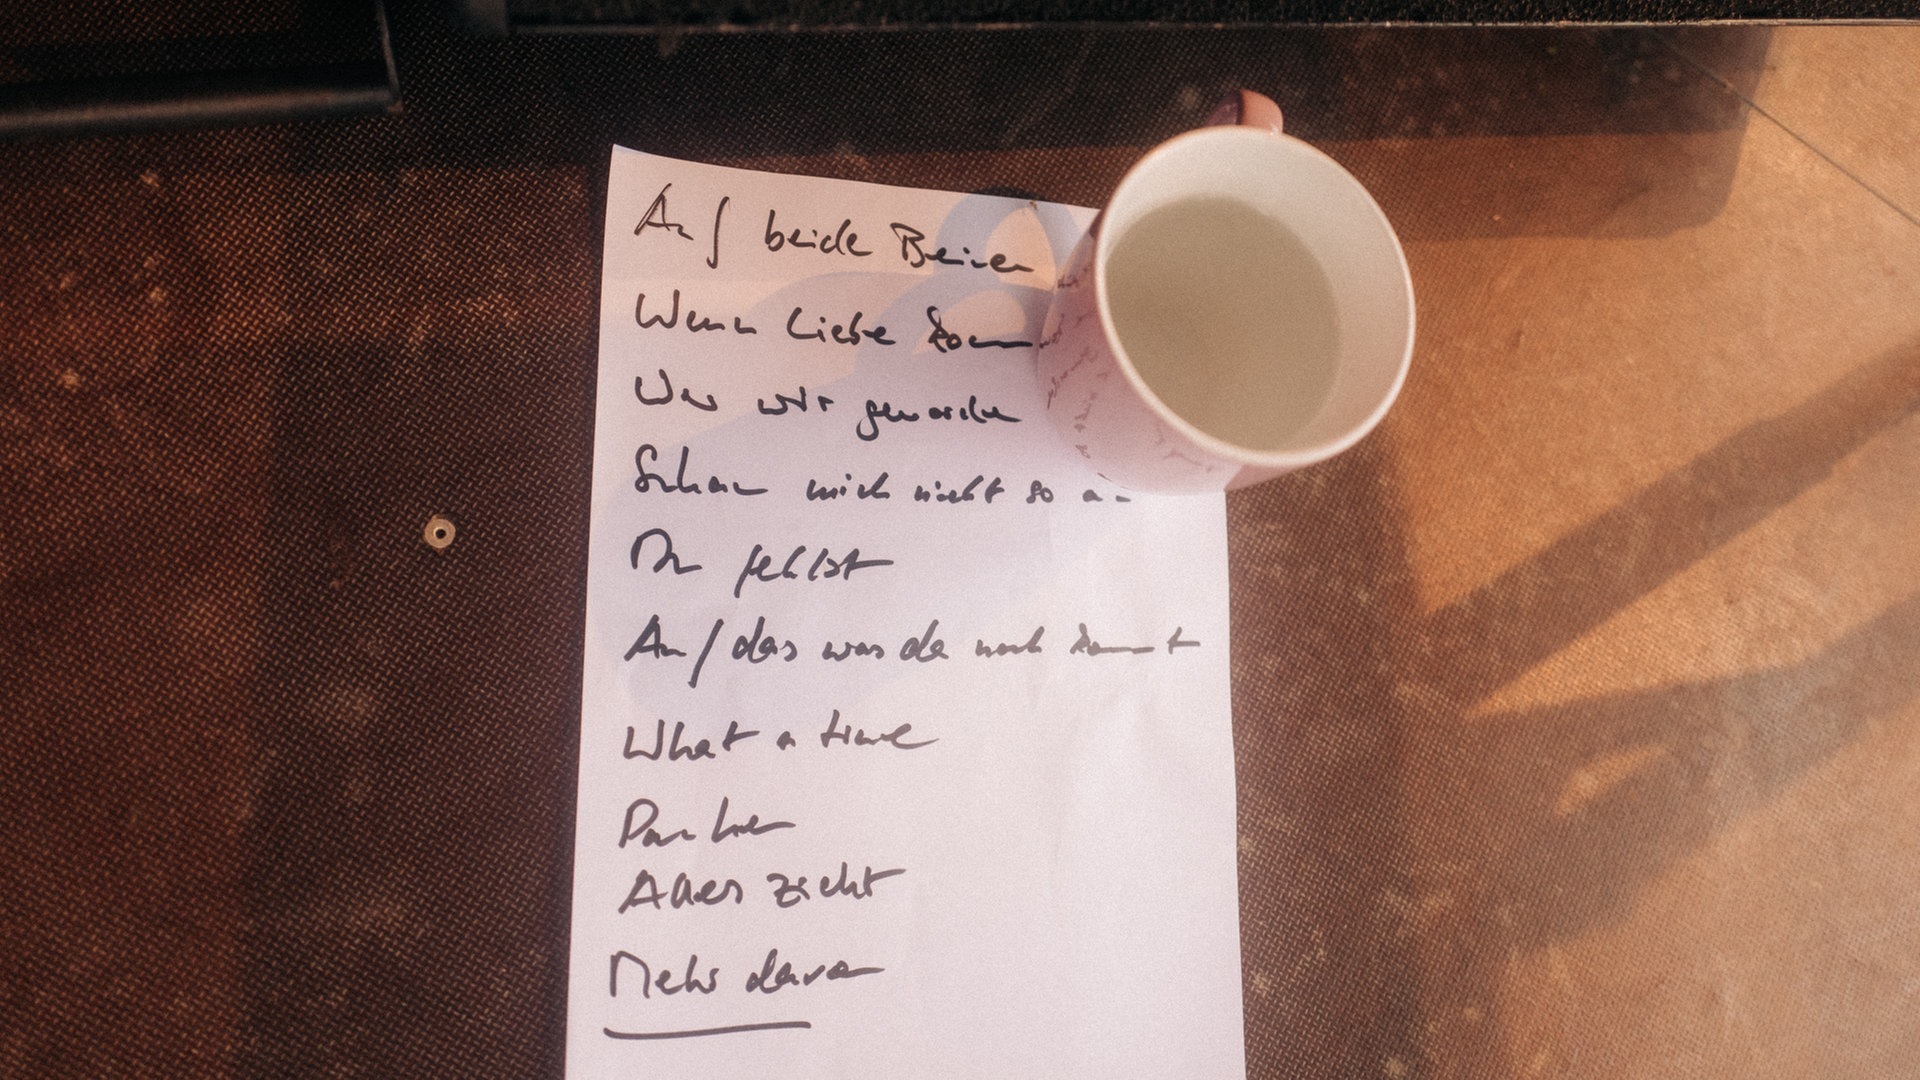 Auf beide Beinen
Wenn Liebe komm
Was wir geworden
Schau mich nicht so an
Du fehlst
Auf das was da noch kommt
What a time
Alles zieht
Mehr davon